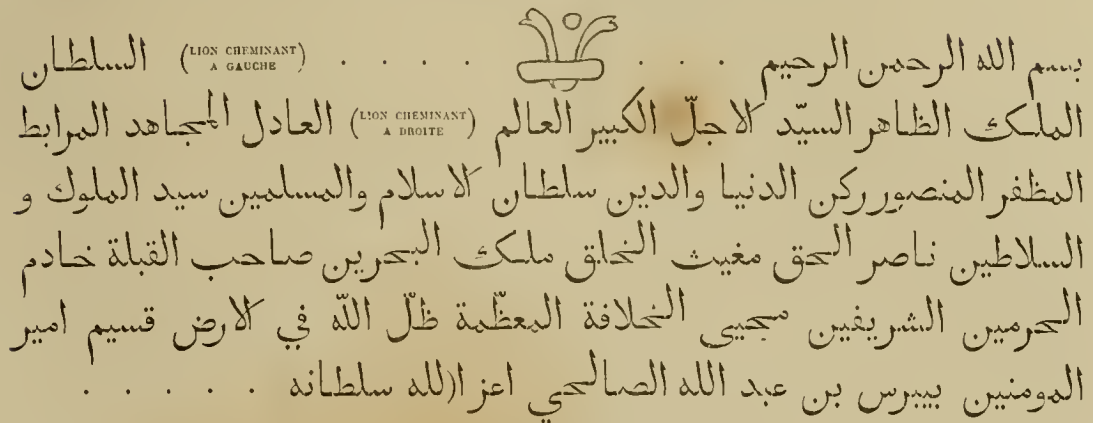 بسم الله الرحمن الرحيم . . . . . . . (LION CHEMINANT A GAUCHE) السلطان
الملك الظاهر السيّد الاجلّ الكبير العالم (LION CHEMINANT A DROITE) العادل المجاهد المرابط
المظفر المنصور ركن الدنيا والدين سلطان الاسلام والمسلمين سيد الملوك و
السلاطين ناصر الحق مغيث الخلق ملك البحرين صاحب القبلة خادم
الحرمين الشريفين محيى الخلافة المعظّمة ظلّ اللّه في الارض قسيم امير
المومنين بيبرس بن عبد الله الصالحي اعز ا(لله سلطانه . . . . .